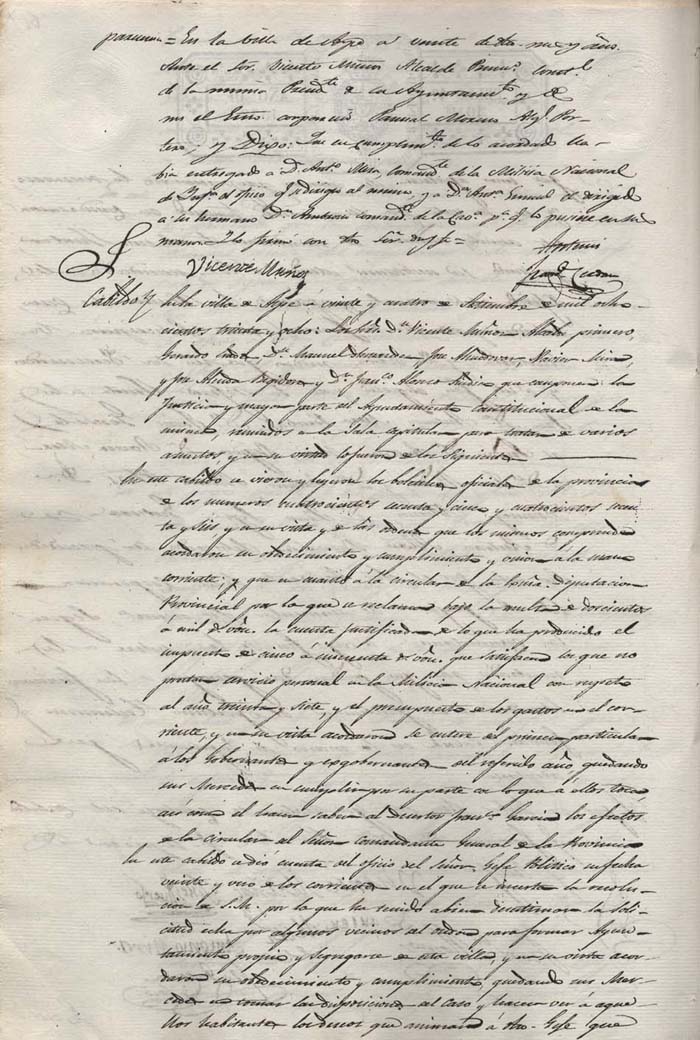 En la villa de Ayora a veinte de dho. mes y año.
Ante el Sor. Vicente Muñoz Alcalde Primº. Constl.
de la misma Presidte. de su Ayuntamto. y de
mi el Esno. compareció Pascual Moreno Algl. Por-
tero, y Dixo: Que en cumplimto. de lo acordado ha-
bia entregado a Dn. Anto. Miro, comandte. de la Milicia Nacional
de Infa. el oficio q. se dirige al mismo, y a Dn. Anto. el dirigido
a su hermano Dn. comandte. de la pa. q. lo pusiese en su
mano. Y lo firmó con dho Sor. doy fe =
Vicente Muñoz
Antemi
Cabildo En la villa de a veinte y cuatro de Setiembre de mil ocho-
cientos treinta y ocho: Los Sres. Dn. Vicente Muñoz Alcalde primero,
segundo, Dn. Manuel
y Regidores y Dn. Franco. Alonso Sindico que componen la
Justicia y mayor parte del Ayuntamiento Constitucional de la
misma, reunidos en la Sala capitular para tratar de varios
asuntos y en su virtud lo fueron de los siguientes
En este cabildo se vieron y leyeron los boletines oficiales de la provincia
de los numeros cuatrocientos y cinco y cuatrocientos
y seis y en su vista y de las ordenes que los mismos comprenden
acordaron su obedecimiento y cumplimiento y union a la mano
corriente; y que en cuanto á la circular de la Exma. Diputacion
Provincial por la que se reclama bajo la multa de doscientos
á mil rs. von. la cuenta justificada de lo que ha producido el
impuesto de cinco á cincuenta rs. von. que satisfacen los que no
prestan servicio personal en la Milicia Nacional con respeto
al año treinta y siete, y el presupuesto de los gastos en el cor-
riente, y en su vista acordaron se entere del primer particular
á los Gobernantes y exgobernantes del referido año, quedando
sus Mercedes en cumplir por su parte con lo que á ellos toca
asi como el hacer saber al desertor Franco. Garcia los efectos
de la circular del Señor Comandante General de la Provincia
En este cabildo se dió cuenta del oficio del Señor Gefe Politico su fecha
veinte y uno de los corrientes en el que se inserta la resolu-
cion de S.M. por la que ha tenido abien desestimar la soli-
citud echa por algunos vecinos para formar Ayun-
tamiento propio y segregarse de esta villa, y en su vista acor-
daron su obedecimiento y cumplimiento, quedando sus Mer-
cedes en tomar las disposiciones al caso y hacer ver a aque-
llos habitantes los deseos que animan á dho. Gefe que